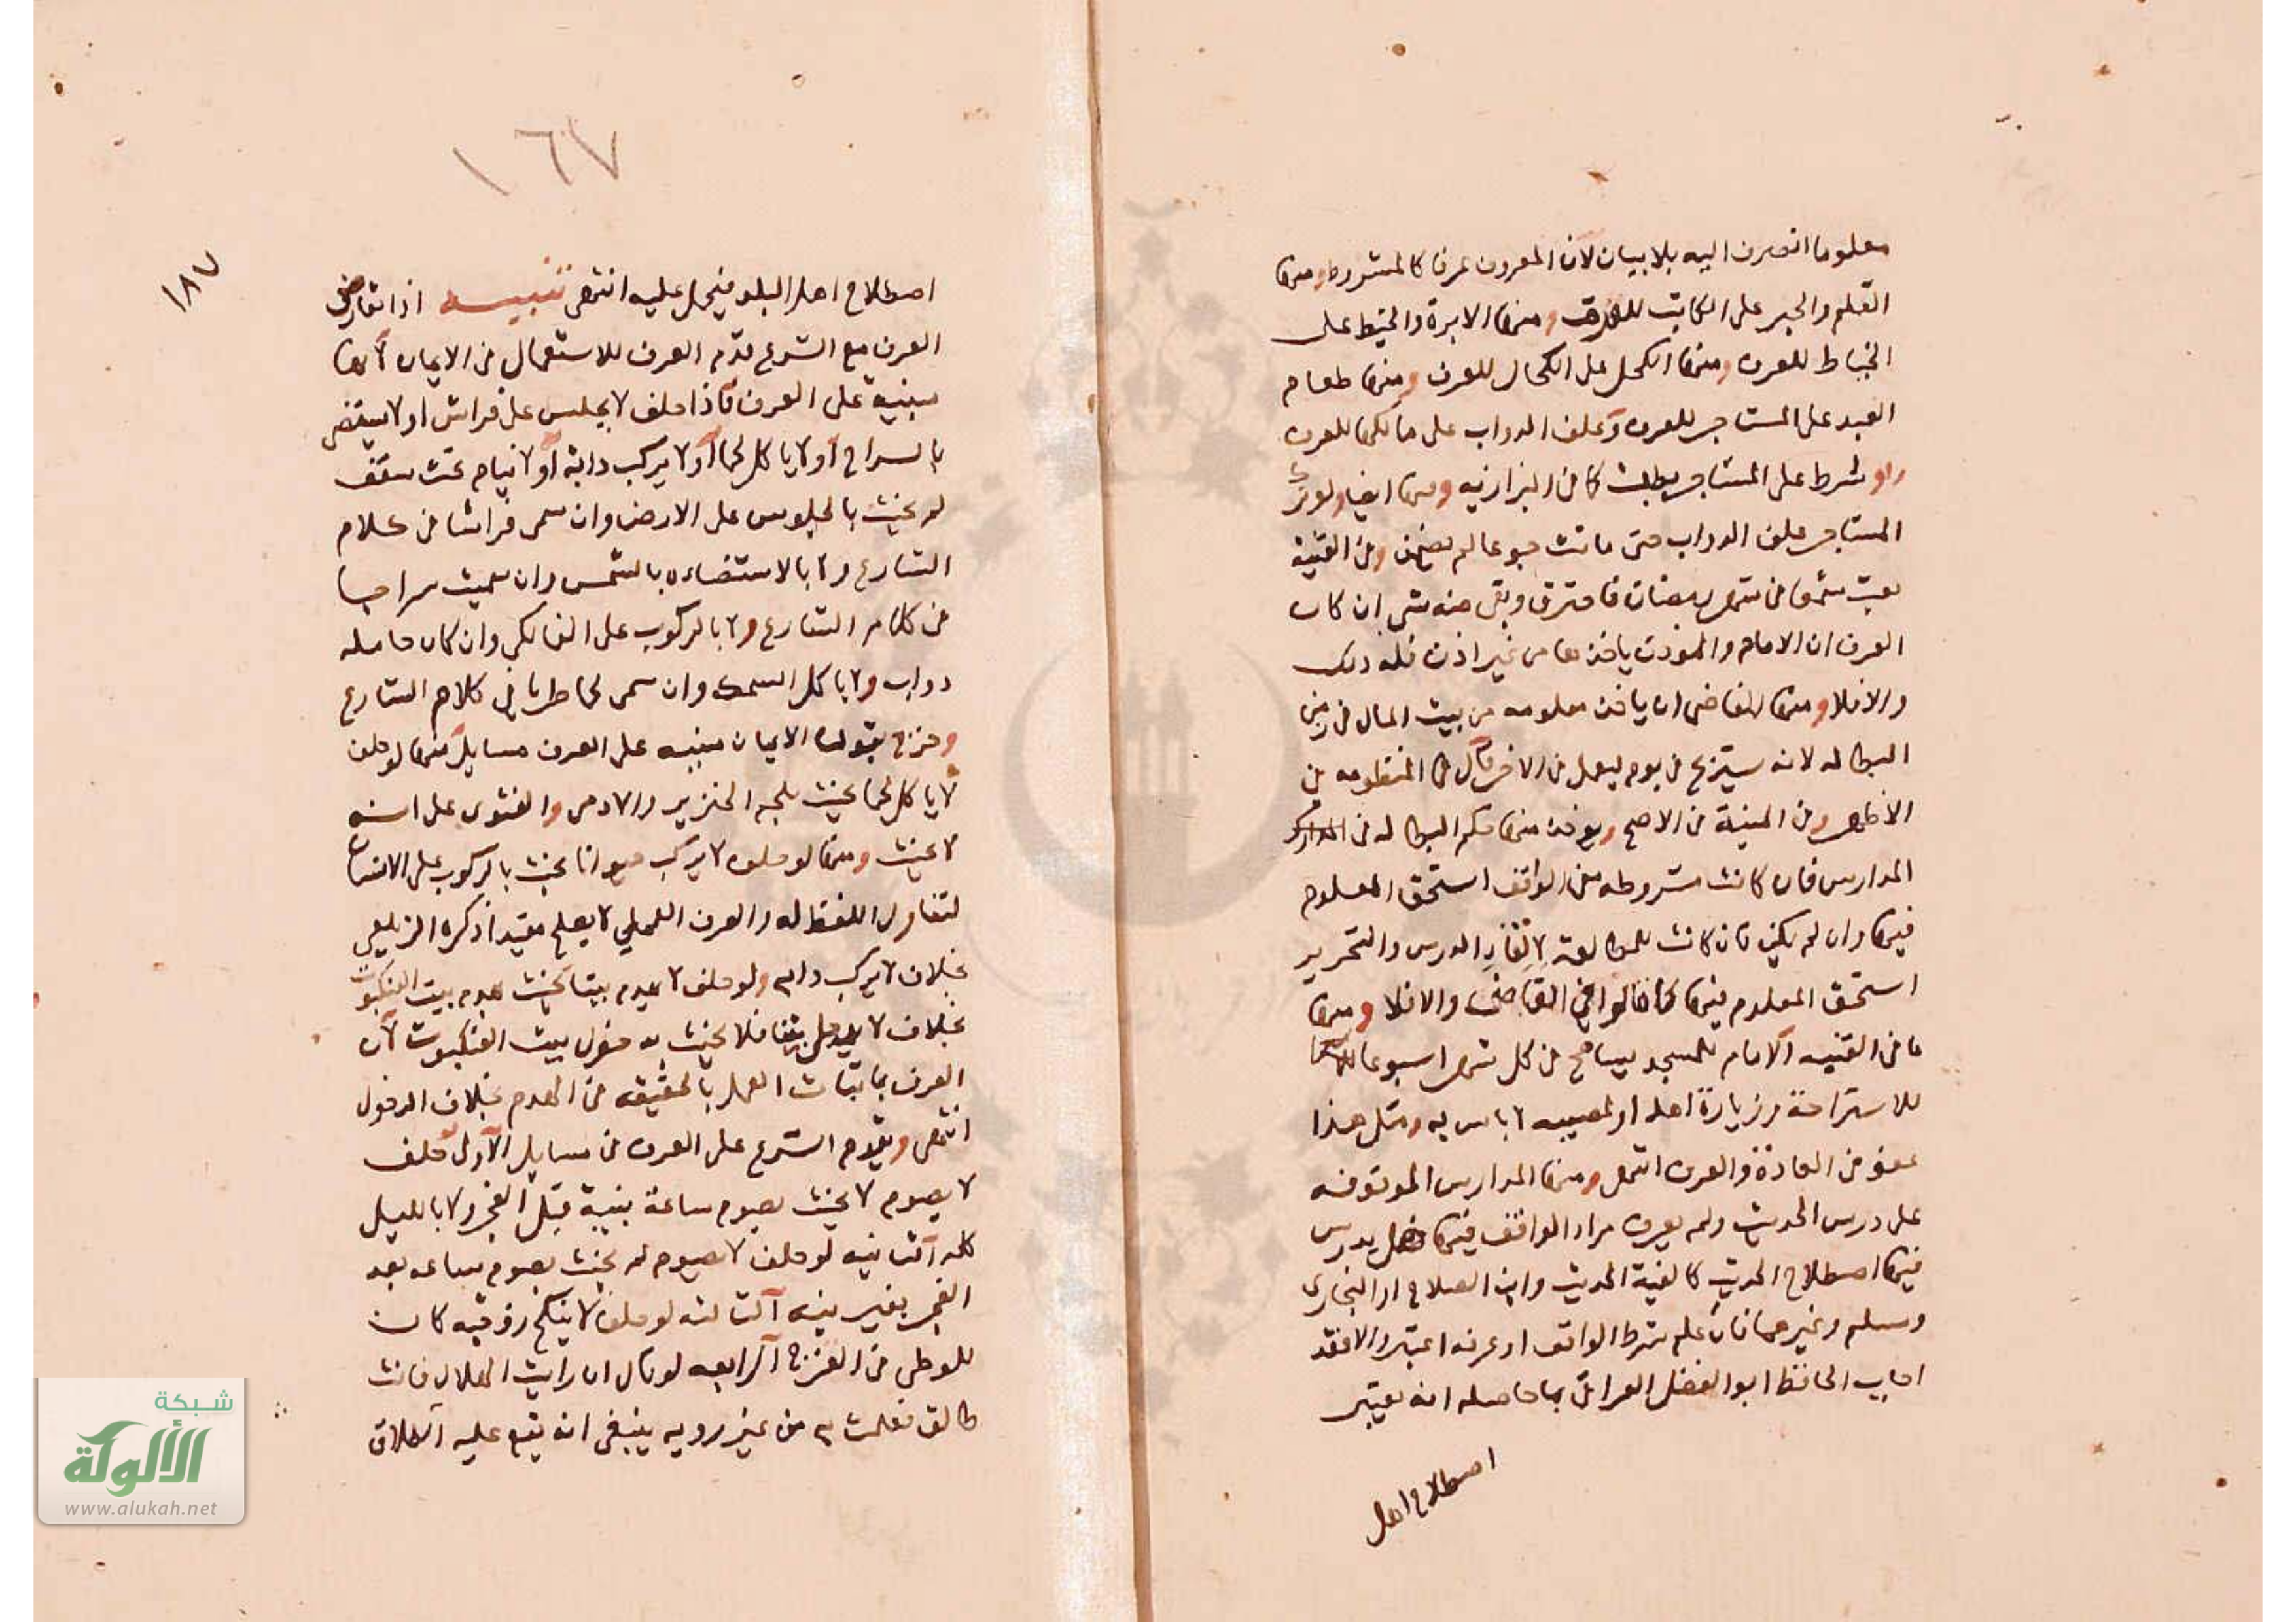 معلوما انصرف اليه بلا بيان لان المعروف عرفا كالمشروط ومنها
القلم والحبر على الكاتب للعرف ومنها الابرة والخيط على
الخياط للعرف ومنها الكحل على الكحال للعرف ومنها طعام
العبد على المستاجر للعرف وعلف الدواب على مالكها للعرف
ولو شرط على المستاجر بطلت كما في البزازيه ومنها ايضا ولو ترك
المستاجر علف الدواب حتى ماتت جوعا لم يضمن وفي القنية
بعث شمعا في شهر رمضان فاحترق وبقي منه شي ان كان
العرف ان الامام والموذن ياخذها من غير اذن فله ذلك
والا فلا ومنها القاضي ان ياخذ معلومه من بيت المال في زمن
البطاله لانه يستريح في يوم ليعمل في الاخر قال في المنظومه في
الاظهر وفي المنية في الاصح ويوخذ منها حكم البطاله في
المدارس فان كانت مشروطه من الواقف استحق المعلوم
فيها وان لم يكن فان كانت للمطالعة لالقاء الدرس والتحرير
استحق المعلوم فيها كما قالوا في القاضي والا فلا ومنها
ما في القنيه الامام للمسجد يسامح في كل شهر اسبوعا
للاستراحة وزيارة اهله او لمصيبه لا باس به ومثل هذا
عفو في العادة والعرف انتهى ومنها المدارس الموقوفه
على درس الحديث ولم يعرف مراد الواقف فيها فهل يدرس
فيها اصطلاح الحديث كالفية الحديث وابن الصلاح او البخاري
ومسلم وغيرهما فان علم شرط الواقف او عرفه اعتبر والا فقد
اجاب الحافظ ابو الفضل العراقي بما حاصله انه يعتبر
اصطلاح اهل
١٦٧
١٨٧
اصطلاح اهل البلد فيحمل عليه انتهى تنبيه اذا تعارض
العرف مع الشرع قدم العرف للاستعمال في الايمان لانها
مبنية على العرف فاذا حلف لا يجلس على فراش او لا يستضي
بالسراج او لا ياكل لحما او لا يركب دابة او لا ينام تحت سقف
لم يحنث بالجلوس على الارض وان سمي فراشا في كلام
الشارع ولا بالاستضاءه بالشمس وان سميت سراجا
في كلام الشارع ولا بالركوب على الفالكي وان كان حامله
دواب ولا باكل السمك وان سمي لحما طريا في كلام الشارع
وخرج بقوله الايمان مبنيه على العرف مسايل منها لو حلف
لا ياكل لحما يحنث بلحم الخنزير والادمي والفتوى على انه
لا يحنث ومنها لو حلف لا يركب حيوانا يحنث بالركوب على الانسان
لتناول اللفظ له والعرف العملي لا يصلح مقيدا ذكره الزيلعي
بخلاف لا يركب دابه ولو حلف لا يهدم بيتا يحنث بهدم بيت العنكبوت
بخلاف لا يدخل بيتا فلا يحنث بدخول بيت العنكبوت لان
العرف العمل بالحقيقه في الهدم بخلاف الدخول
انتهى ويقدم الشرع على العرف في مسايل الاولى حلف
لا يصوم لا يحنث بصوم ساعة بنية قبل الفجر ولا بالليل
كله الثانيه لو حلف لا يصوم لم يحنث بصوم ساعه بعد
الفجر بغير نيه الثالثه لو حلف لا ينكح زوجته كان
للوطي في الفرج الرابعه لو قال ان رايت الهلال فانت
طالق فعلمت به من غير رويه ينبغي ان يقع عليه الطلاق
شبكة
الألوكة
www.alukah.net